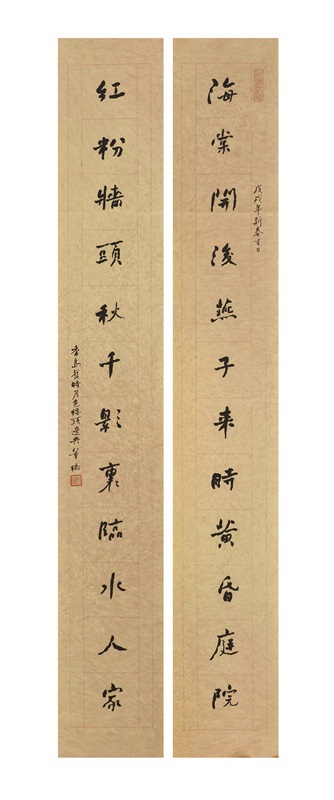 海棠開後燕子来時黄昏庭院
戊戌年新春吉日
紅粉牆頭秋千影裏臨水人家